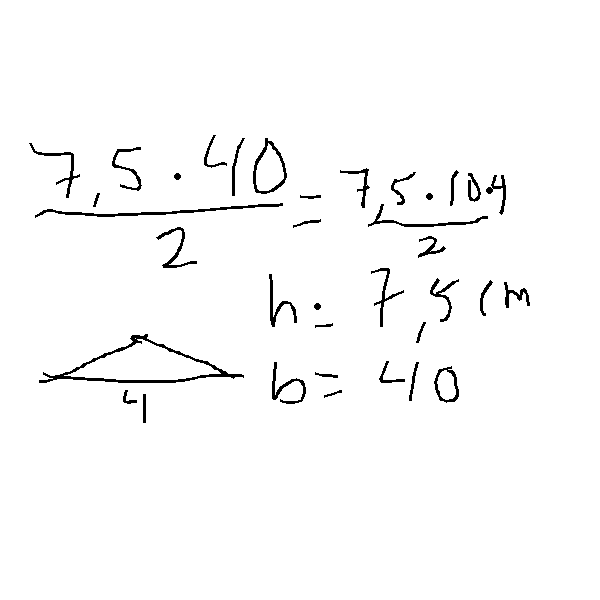 7,5 · 40 / 2 = 7,5 · 10·4 / 2
h = 7,5 cm
b = 40
4